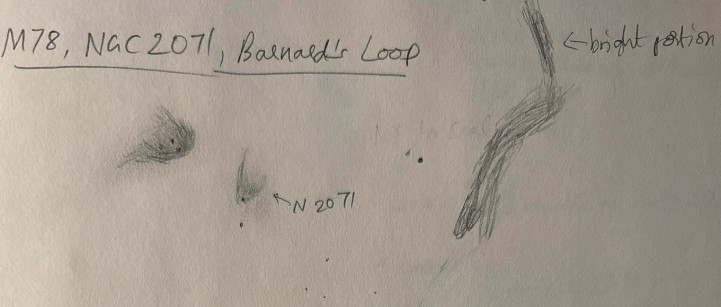 M78, NGC 2071, Barnard's Loop
←bright portion
←N 2071